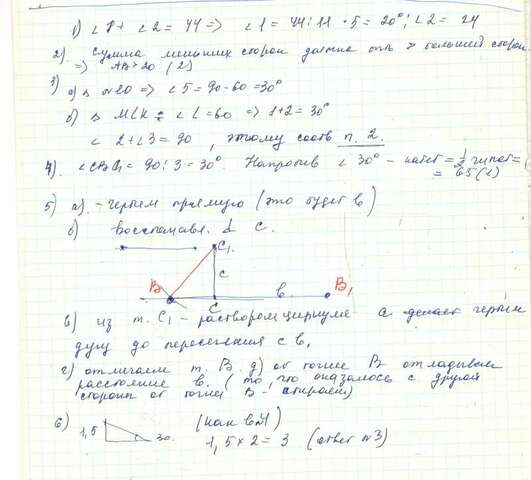 1) ∠1 + ∠2 = 44 => ∠1 = 44:11 · 5 = 20° ; ∠2 = 24
2) Сумма меньших сторон должна быть > большей стороны
=> AB > 20 (2)
3) а) => ∠5 = 90-60 = 30°
б) △ MLK ∠L = 60 => 1+2 = 30°
∠2+∠3 = 90, этому соотв п. 2.
4) = 90:3 = 30°. Напротив ∠30° - катет = 1/2 гипот =
= 65 (1)
5) а) - чертим прямую (это будет b)
б) d c.
C1
c
B
C
b
B1
в) из т. C1 - раствором циркуля a делаем чертим
дугу до пересечения с b,
г) отмечаем т. B. д) от точки B откладываем
расстояние b. (то, что оказалось с другой
стороны от точки B - стираем)
6) 1,5 30
1,5 x 2 = 3 (ответ №3)